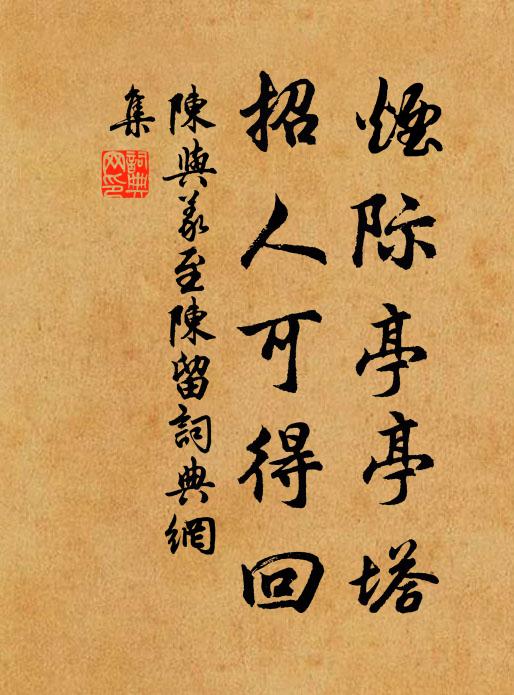 煙际亭亭塔
招人可得回
陳與義至陳留詞典網
集
詞典网印